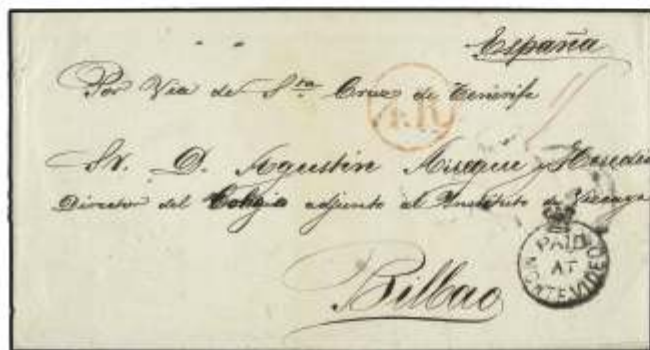 España
Por Via de Sta. Cruz de Tenerife
4.R.
Sr. D. Agustin
Director del Colegio adjunto al Instituto de Vizcaya
PAID AT MONTEVIDEO
Bilbao